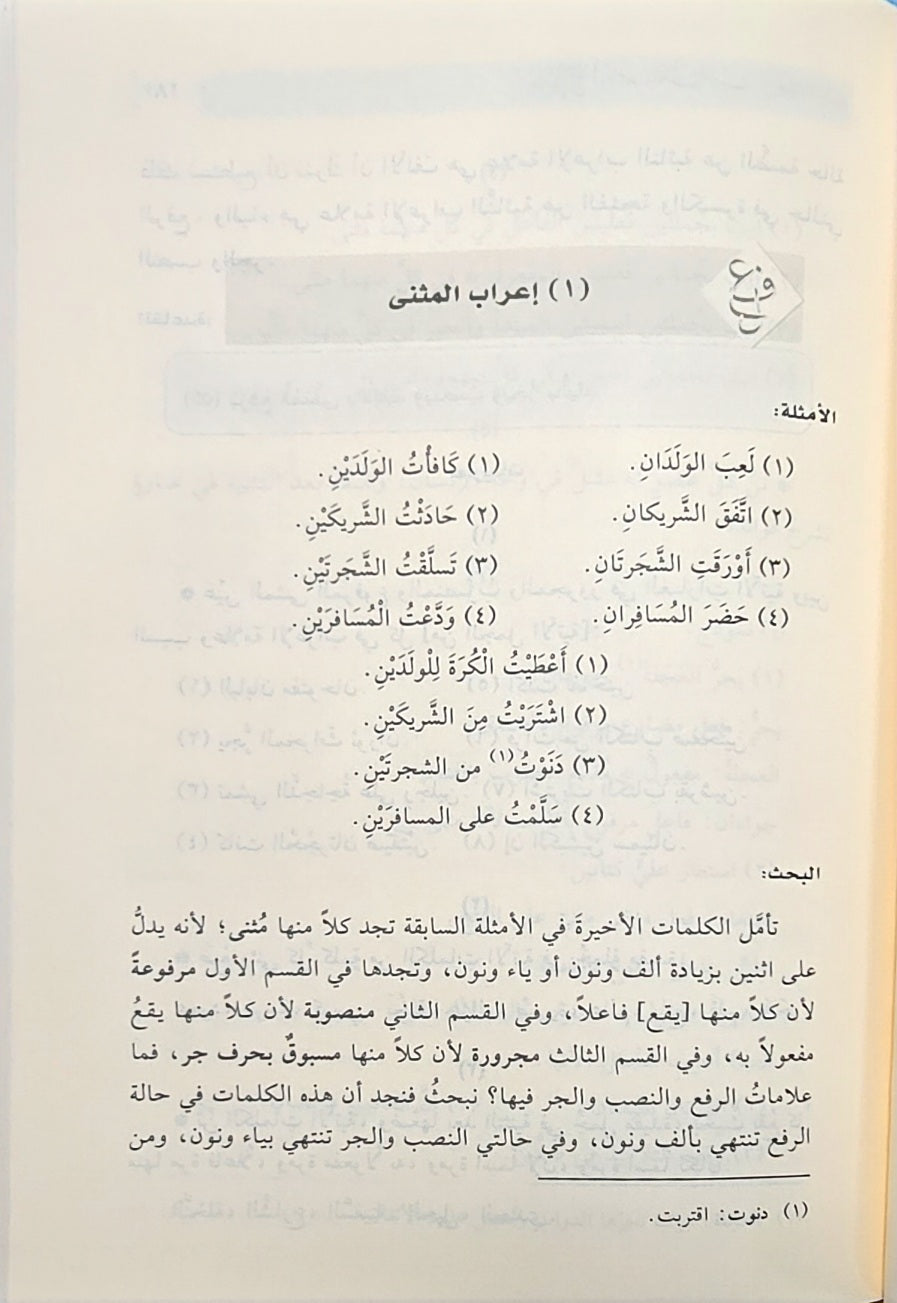 (١) إعراب المثنى
الأمثلة:
(١) لَعِبَ الوَلَدَانِ. (١) كَافأْتُ الوَلَدَيْنِ.
(٢) اتَّفَقَ الشَّريكانِ. (٢) حَادَثْتُ الشَّريكَيْنِ.
(٣) أَوْرَقَتِ الشَّجَرتَانِ. (٣) تَسلَّقْتُ الشَّجَرتَيْنِ.
(٤) حَضَرَ المُسَافِرانِ. (٤) وَدَّعْتُ الْمُسَافرَيْنِ.
(١) أَعْطَيْتُ الْكُرَةَ لِلْولَدَيْنِ.
(٢) اشْتَرَيْتُ مِنَ الشَّريكَيْنِ.
(٣) دَنَوْتُ(١) من الشجرتَيْنِ.
(٤) سَلَّمْتُ على المسافرَيْنِ.
البحث:
تأمَّل الكلمات الأخيرةَ في الأمثلة السابقة تجد كلاً منها مُثنى؛ لأنه يدلُّ
على اثنين بزيادة ألف ونون أو ياء ونون، وتجدها في القسم الأول مرفوعةً
لأن كلاً منها [يقع] فاعلاً، وفي القسم الثاني منصوبة لأن كلاً منها يقعُ
مفعولاً به، وفي القسم الثالث مجرورة لأن كلاً منها مسبوقٌ بحرف جر، فما
علاماتُ الرفع والنصب والجر فيها؟ نبحثُ فنجد أن هذه الكلمات في حالة
الرفع تنتهي بألف ونون، وفي حالتي النصب والجر تنتهي بياء ونون، ومن
(١) دنوت: اقتربت.